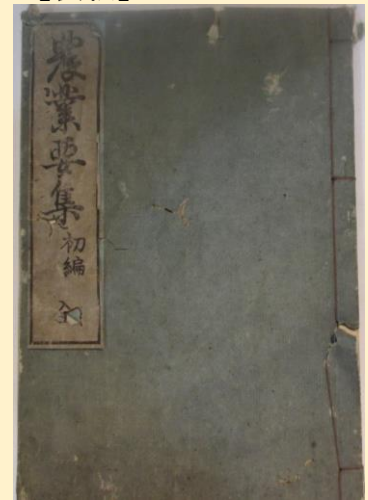 農業要集
初編
全